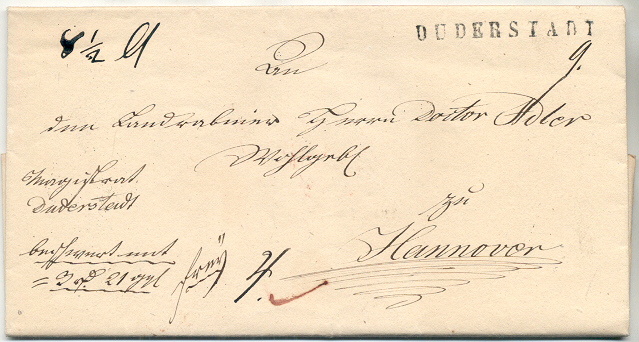 DUDERSTADT
8 1/2
9.
An
den Landrabiner Herrn Doctor Adler
Wohlgeb
Magistrat
Duderstadt
zu
Hannover
beschwert mit
= 3 21 ggl
frey
4.